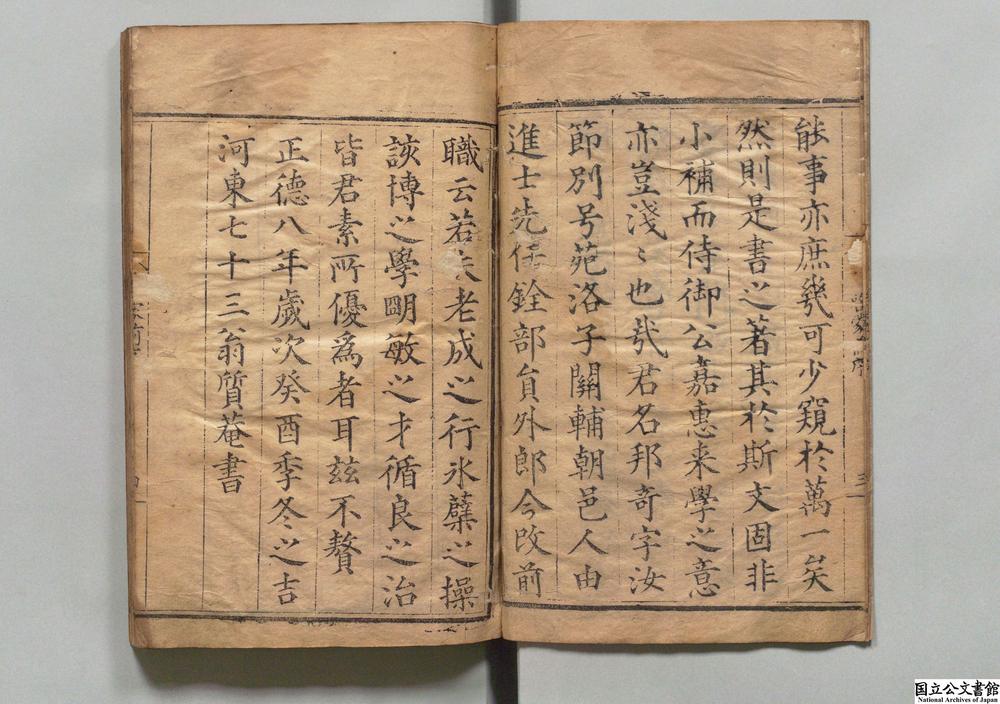 能事亦庶幾可少窺於萬一矣
然則是書之著其於斯文固非
小補而侍御公嘉惠来學之意
亦豈淺〻也㦲君名邦奇字汝
節別号苑洛子關輔朝邑人由
進士先任銓部貟外郎今改前
職云若夫老成之行氷蘖之操
該博之學明敏之才循良之治
皆君素所優爲者耳兹不贅
正德八年歲次癸酉季冬之吉
河東七十三翁質菴書
三
四
国立公文書館
National Archives of Japan